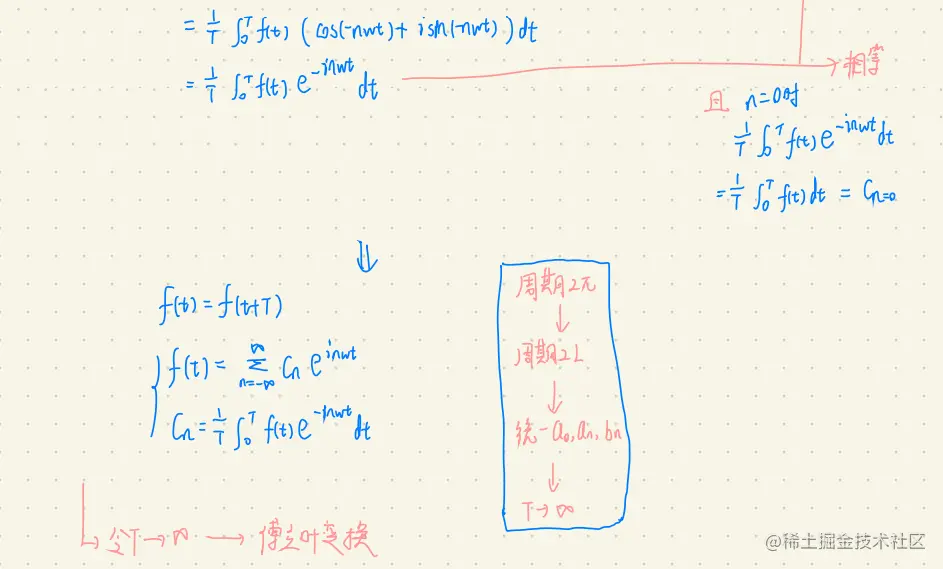 = 1/T ∫₀ᵀ f(t) (cos(-nwt) + isin(-nwt)) dt
= 1/T ∫₀ᵀ f(t) e^{-inwt} dt
相等
且 n=0时
1/T ∫₀ᵀ f(t) e^{-inwt} dt
= 1/T ∫₀ᵀ f(t) dt = C_{n=0}
⇓
f(t) = f(t+T)
f(t) = ∑_{n=-∞}^{∞} Cₙ e^{inwt}
Cₙ = 1/T ∫₀ᵀ f(t) e^{-inwt} dt
令T → ∞ → 傅立叶变换
周期2π
↓
周期2L
↓
统一a₀, aₙ, bₙ
↓
T → ∞
@稀土掘金技术社区